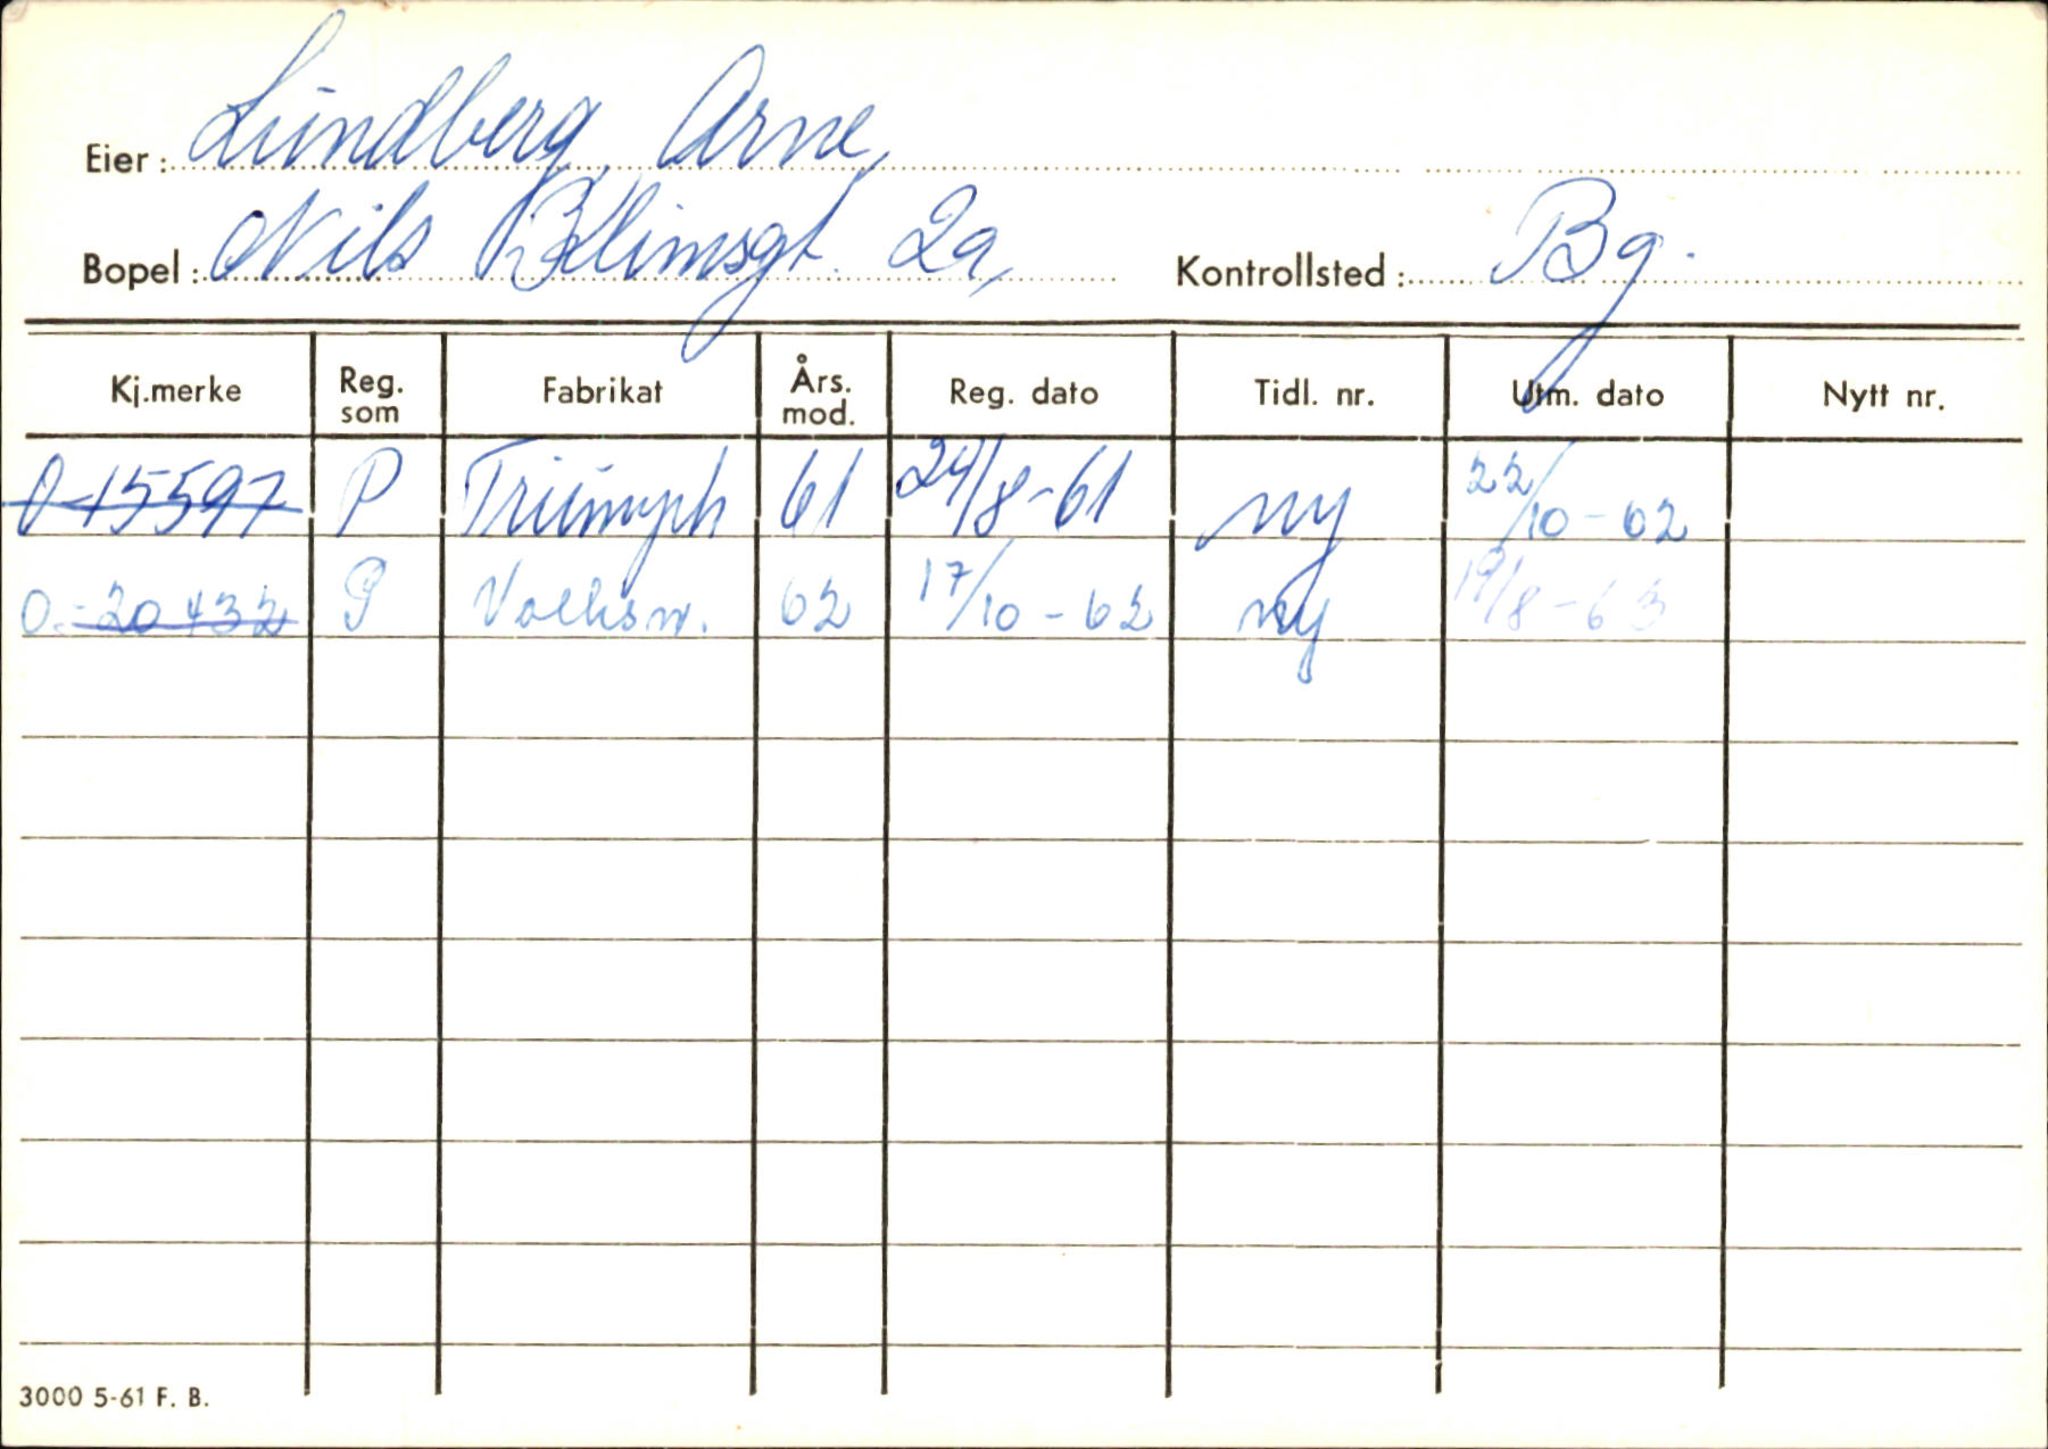 Eier: Lundberg, Arne,
Bopel: Nils Klimsgt. 2a, Kontrollsted: Bg.
Kj.merke Reg. som Fabrikat Års. mod. Reg. dato Tidl. nr. Utm. dato Nytt nr.
O-15597 P Triumph 61 24/8-61 ny 22/10-62
O-20432 P Volksw. 62 17/10-62 ny 19/8-63
3000 5-61 F. B.